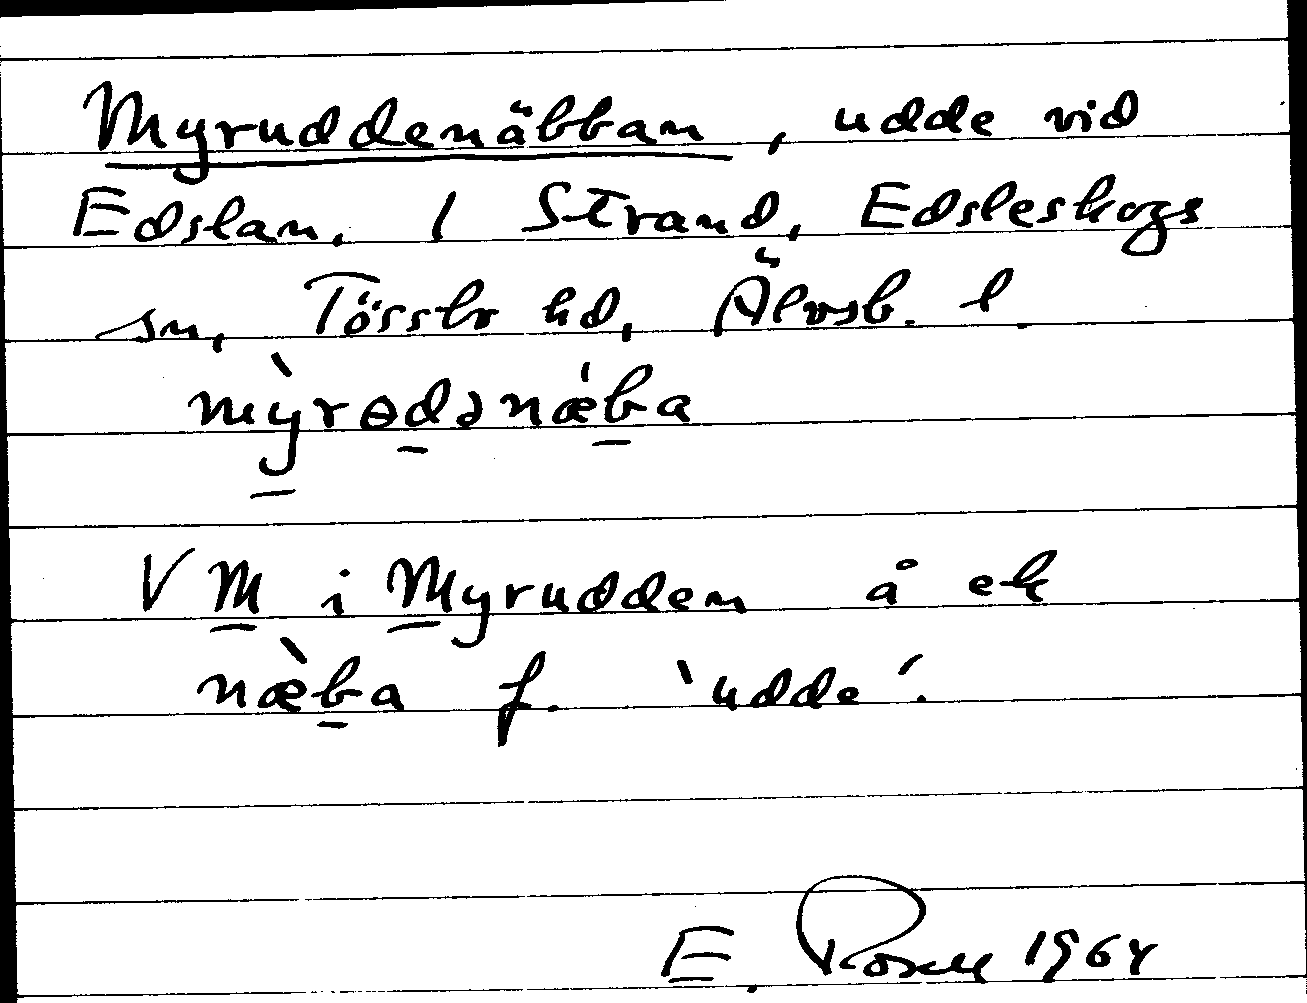 Myruddenäbban, udde vid
Edslan. / Strand, Edsleskogs
sn, Tössbo hd, Älvsb. l.
mỳrɵdənǽba
V M i Myrudden å ek
næ̀ba f. 'udde'.
E. 1964